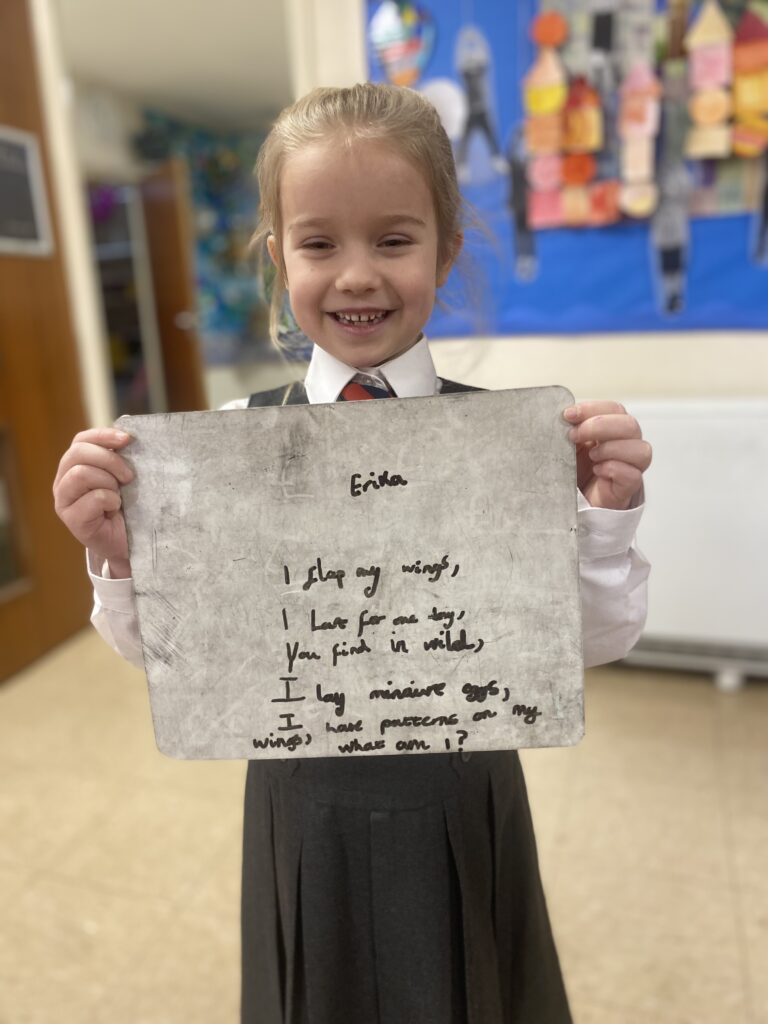 Erika
I flap my wings,
I Last for one day,
You find in wild,
I lay minaiure eggs,
I have patterns on my
wings, what am I?